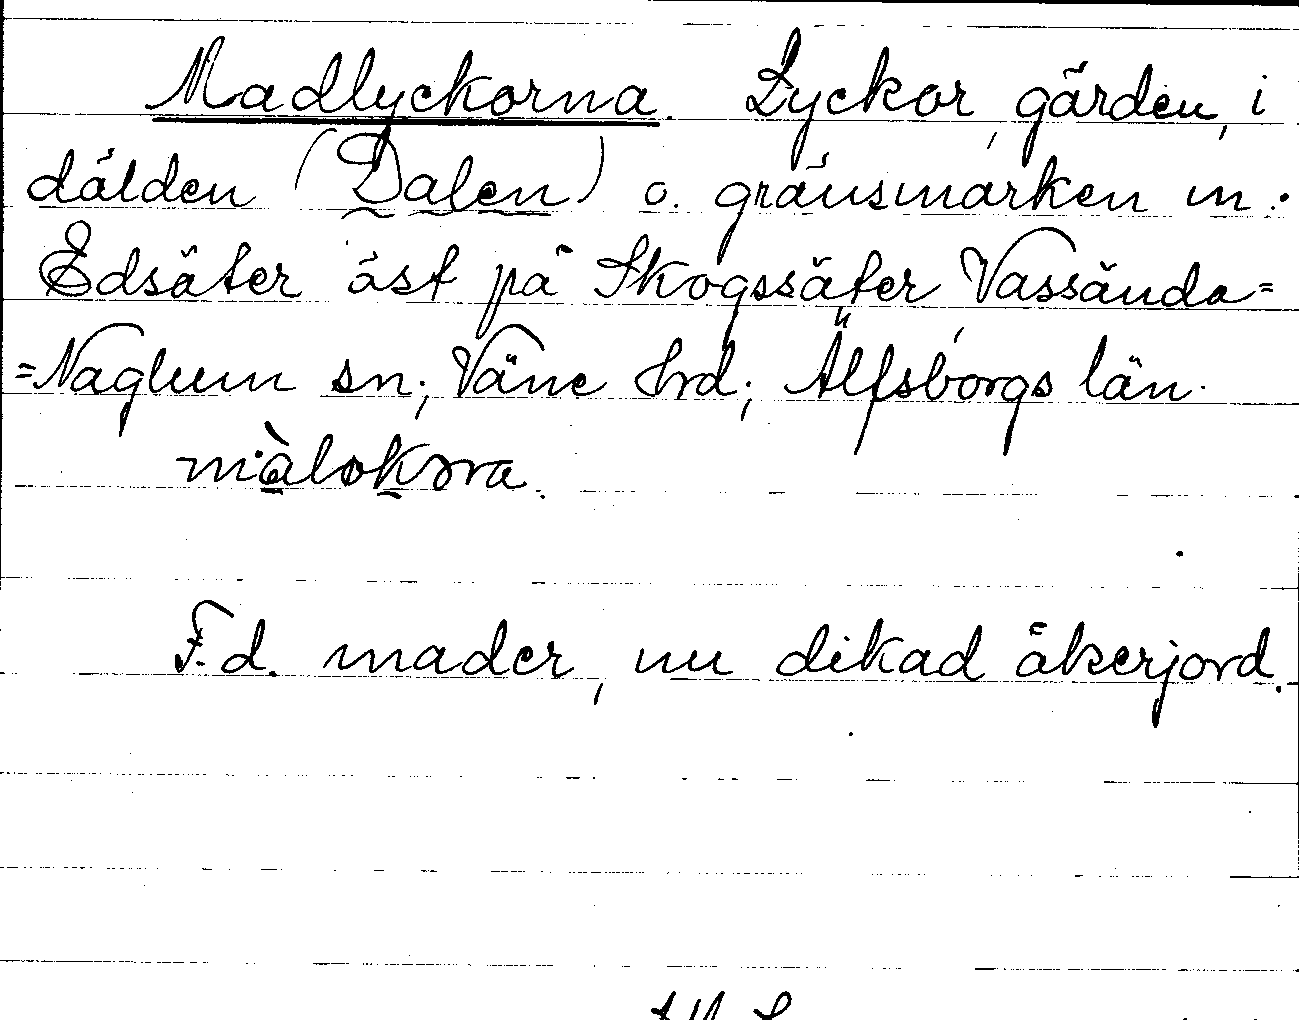 Madlyckorna. Lyckor, gärden, i
dälden (Dalen) o. gränsmarken m.
Edsäter öst på Skogssäter Vassända=
=Naglum sn; Väne hrd; Älfsborgs län.
F.d. mader, nu dikad åkerjord.